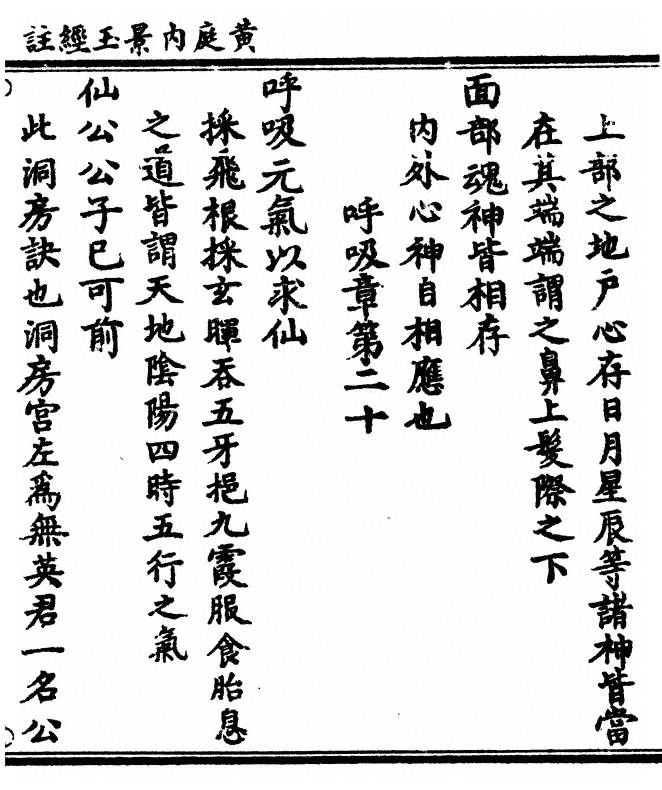 黃庭內景玉經註
上部之地戶心存日月星辰等諸神皆當
在其端端謂之鼻上髮際之下
面部魂神皆相存
內外心神自相應也
呼吸章第二十
呼吸元氣以求仙
採飛根採玄暉吞五牙挹九霞服食胎息
之道皆謂天地陰陽四時五行之氣
仙公公子已可前
此洞房訣也洞房宮左爲無英君一名公